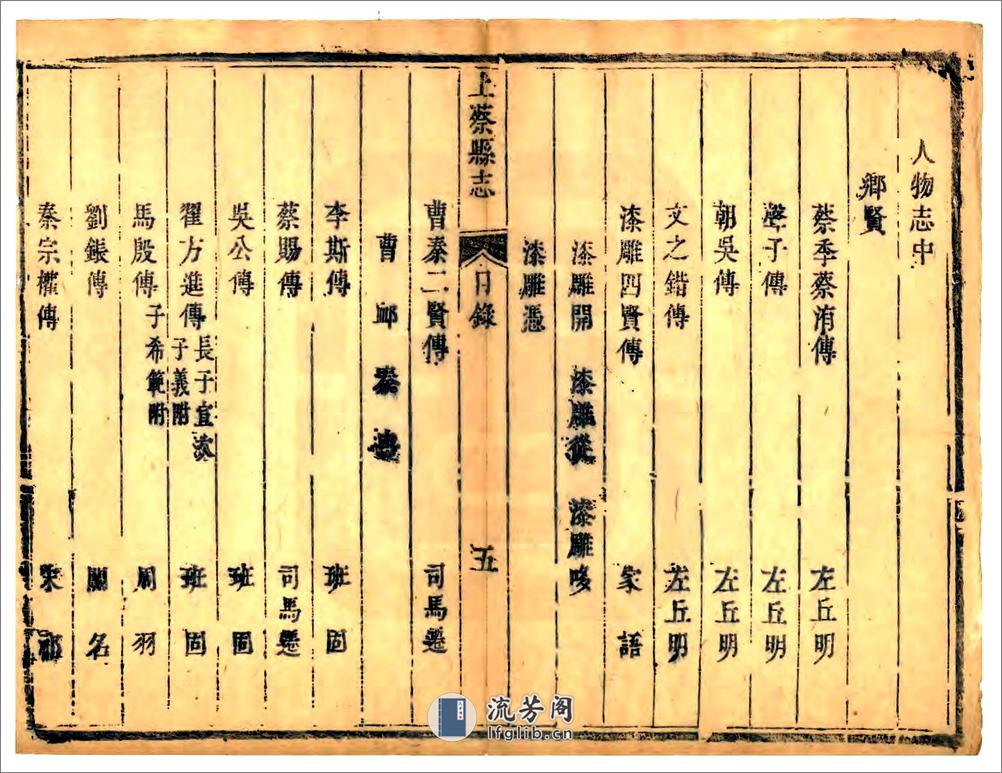 人物志中
鄉賢
蔡季蔡洧傳 左丘明
聲子傳 左丘明
朝吳傳 左丘明
文之錯傳 左丘明
漆雕四賢傳 家語
漆雕開 漆雕從 漆雕哆
漆雕憑
上蔡縣志 目錄 五
曹秦二賢傳 司馬遷
曹卹 秦
李斯傳 班固
蔡賜傳 司馬遷
吳公傳 班固
翟方進傳 長子宣次子義附 班固
馬殷傳 子希範附 周羽
劉鋹傳 闕名
秦宗權傳 宋祁
流芳阁
lfglib.cn